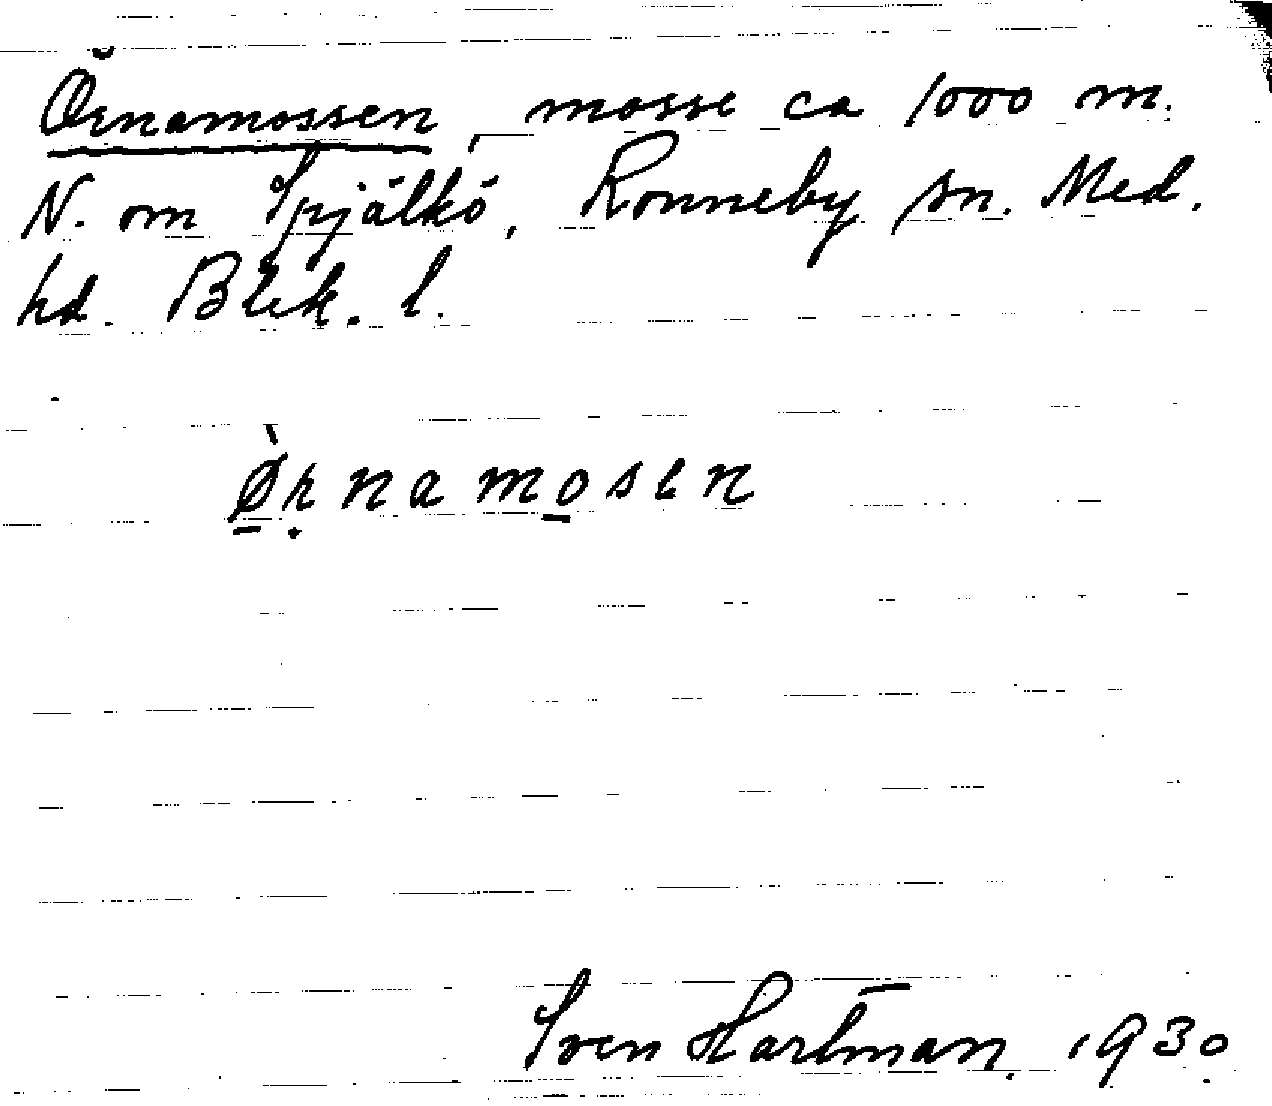 Örnamossen, mosse ca 1000 m.
N. om Spjälkö, Ronneby sn. Med.
hd. Blek. l.
Ø̱̀ṛnamo̱sen
Sven Hartman. 1930.